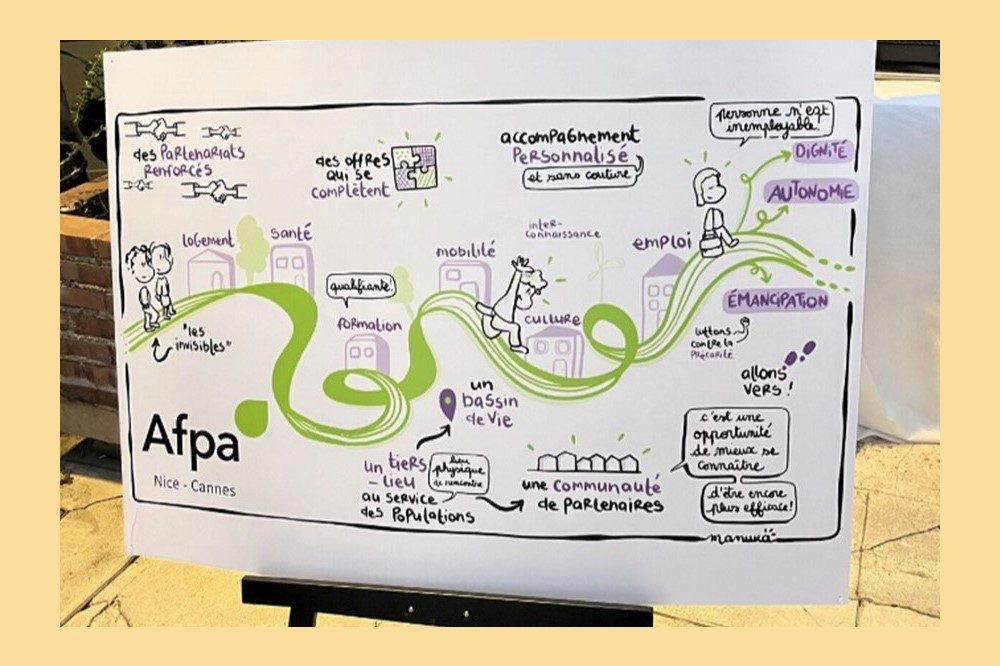 des Partenariats
Renforcés
des offres
qui se
complètent
accompagnement
Personnalisé
et sans couture
personne n'est
inemployable!
DIGNITÉ
AUTONOMIE
ÉMANCIPATION
logement
santé
qualifiante!
formation
mobilité
inter-
connaissance
culture
emploi
"les
invisibles"
luttons
contre la
Précarité
allons
vers !
un
bassin
de vie
Afpa
Nice - Cannes
un tiers
- lieu
au service
des Populations
lieu
physique
de rencontre
une communauté
de partenaires
c'est une
opportunité
de mieux se
connaître
d'être encore
plus efficace!
manukä